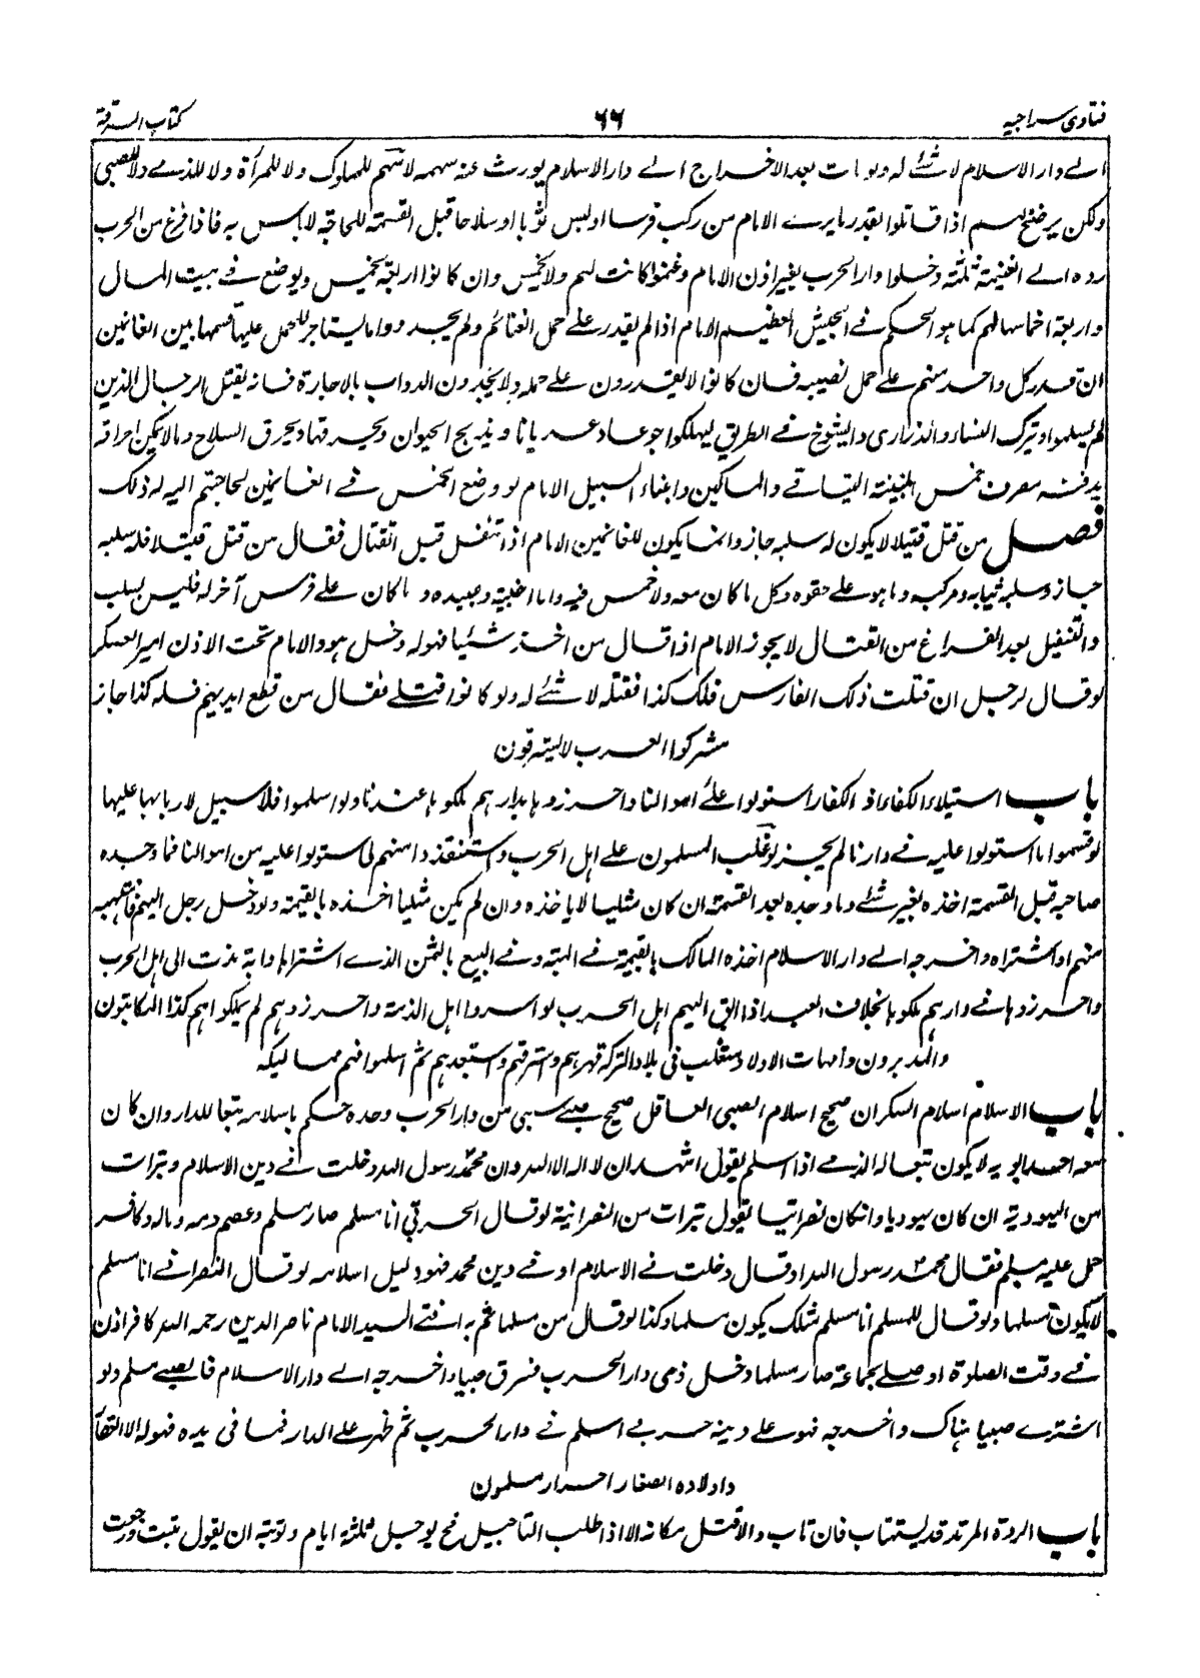 فتاوى سراجيه ٦٦ كتاب السرقة
الى دار الاسلام لا شئ له ولو مات بعد الاخراج الى دار الاسلام يورث عنه سهمه لا سهم للمملوك ولا للمرأة ولا للذمي ولا للصبي
ولكن يرضخ لهم اذا قاتلوا بقدر ما يرى الامام من ركب فرسا او لبس ثوبا او سلاحا قبل القسمة للحاجة لا باس به فاذا فرغ من الحرب
رده الى الغنيمة ثلثة دخلوا دار الحرب بغير اذن الامام وغنموا كانت لهم ولا خمس وان كانوا اربعة يخمس ويوضع في بيت المال
واربعة اخماسها لهم كما هو الحكم في الجيش العظيم الامام اذا لم يقدر على حمل الغنائم ولم يجد دوابا يستاجر للحمل عليها قسمها بين الغانمين
ان قدر كل واحد منهم على حمل نصيبه فان كانوا لا يقدرون على حمله ولا يجدون الدواب بالاجارة فانه يقتل الرجال الذين
لم يسلموا ويترك النساء والذرارى والشيوخ في الطريق ليهلكوا جوعا وعريانا ويذبح الحيوان ويحرقها ويحرق السلاح وما لا يمكن احراقه
يدفنه مصرف خمس الغنيمة اليتامى والمساكين وابناء السبيل الامام لو وضع الخمس في الغانمين لحاجتهم اليه له ذلك
فصل من قتل قتيلا لا يكون له سلبه جاز وانما يكون للغانمين الامام اذا تنفل قبل القتال فقال من قتل قتيلا فله سلبه
جاز وسلبه ثيابه ومركبه وما هو على حقوه وكل ما كان معه ولا خمس فيه واما عبيده وما كان على فرس آخر له فليس بسلب
والتنفيل بعد الفراغ من القتال لا يجوز الامام اذا قال من اخذ شيئا فهو له دخل هو والامام تحت الاذن امير العسكر
لو قال لرجل ان قتلت ذلك الفارس فلك كذا فقتله لا شئ له ولو كانوا قتلى فقال من قطع ايديهم فله كذا جاز
مشركوا العرب لا يسترقون
باب استيلاء الكفار اذ الكفار استولوا على اموالنا واحرزوها بدارهم ملكوها عندنا ولو اسلموا فلا سبيل لاربابها عليها
لو قسموا ما استولوا عليه في دارنا لم يجز لو غلب المسلمون على اهل الحرب واستنقذوا منهم ما استولوا عليه من اموالنا فما وجده
صاحبه قبل القسمة اخذه بغير شئ وما وجده بعد القسمة ان كان مثليا لا ياخذه وان لم يكن مثليا اخذه بالقيمة ولو دخل رجل اليهم فاتهبه
منهم او اشتراه واخرجه الى دار الاسلام اخذه المالك بالقيمة في الهبة وفي البيع بالثمن الذي اشتراها دابة ندت الى اهل الحرب
واحرزوها في دارهم ملكوها بخلاف العبد اذا ابق اليهم اهل الحرب لو اسروا اهل الذمة واحرزوهم لم يملكوا هم كذا المكاتبون
والمدبرون وامهات الاولاد متغلب في بلاد الترك قهرهم واسترقهم واستعبدهم ثم اسلموا فهم مماليكه
باب الاسلام اسلام السكران صحيح اسلام الصبي العاقل صحيح صبي سبي من دار الحرب وحده حكم باسلامه تبعا للدار وان كان
معه احد ابويه لا يكون تبعا له الذمي اذا اسلم يقول اشهد ان لا اله الا الله وان محمد رسول الله دخلت في دين الاسلام وتبرات
من اليهودية ان كان يهوديا وانكان نصرانيا يقول تبرات من النصرانية لو قال الحربي انا مسلم صار مسلم وعصم دمه وماله وكافر
حمل عليه مسلم فقال محمد رسول الله او قال دخلت في الاسلام او في دين محمد فهو دليل اسلامه لو قال النصراني انا مسلم
لا يكون مسلما ولو قال للمسلم انا مسلم مثلك يكون مسلما وكذا لو قال من مسلما غم به افتى السيد الامام ناصر الدين رحمه الله كافر اذن
في وقت الصلوة او صلى بجماعة صار مسلما دخل ذمي دار الحرب فسرق صبيا واخرجه الى دار الاسلام فالصبي مسلم ولو
اشترى صبيا هناك واخرجه فهو على دينه حربي اسلم في دار الحرب ثم ظهر على الدار فما في يده فهو له الا العقار
واولاده الصغار احرار مسلمون
باب الردة المرتد قد يستتاب فان تاب والا قتل مكانه الا اذا طلب التاجيل فح يوجل ثلثة ايام وتوبته ان يقول تبت ورجعت